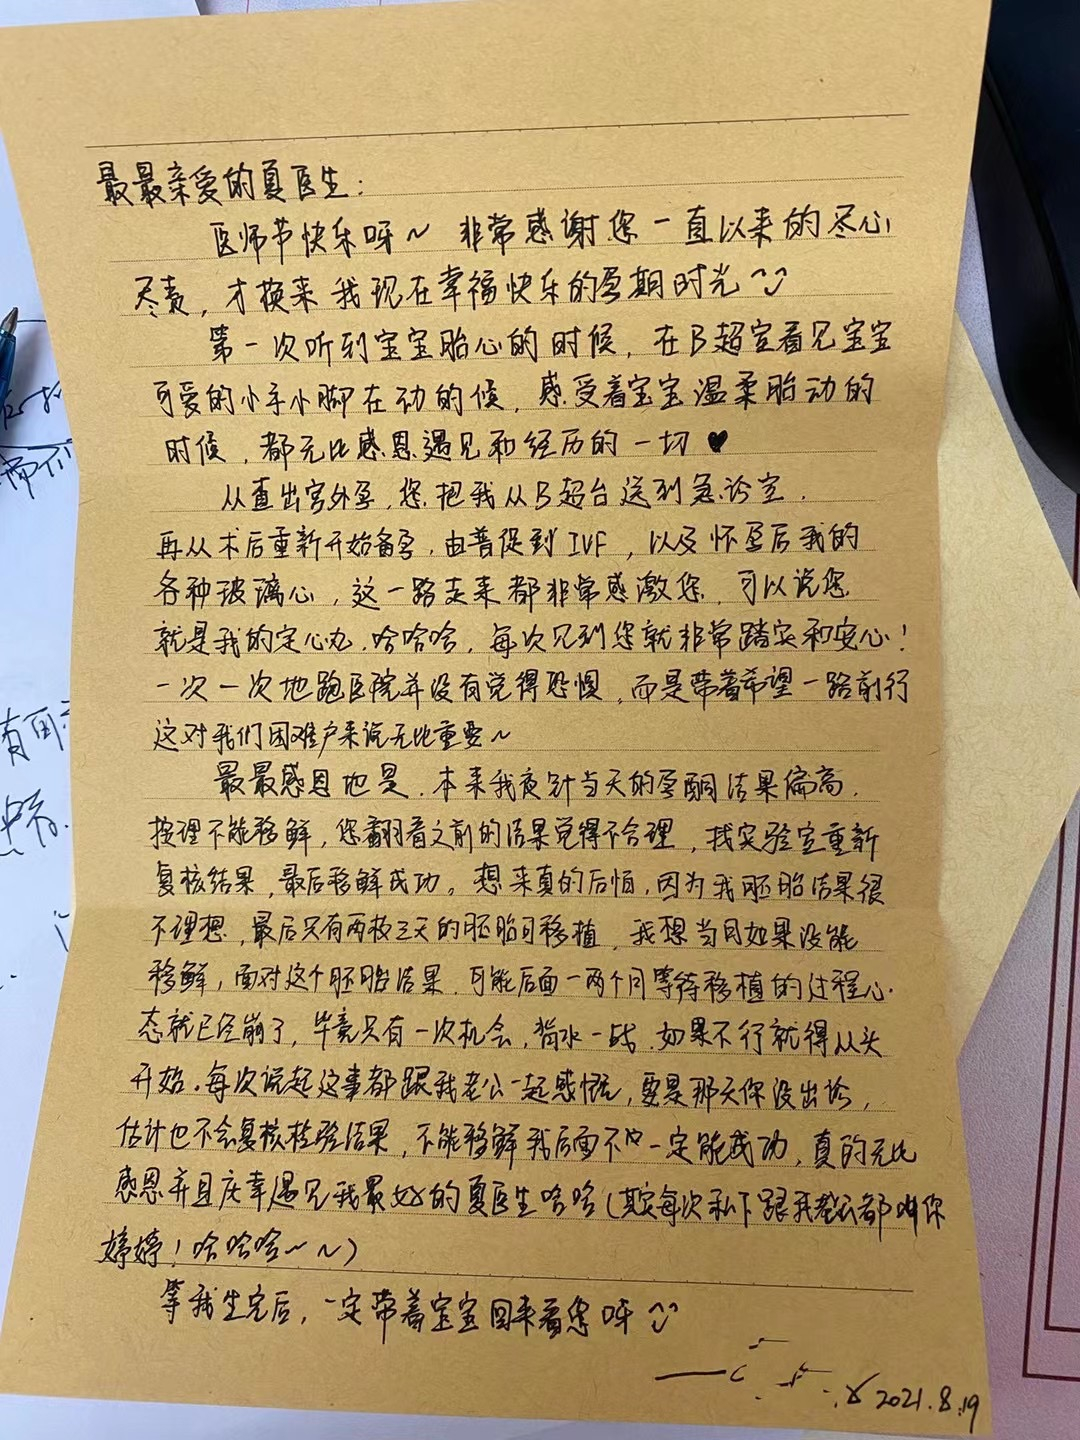 最最亲爱的夏医生：
医师节快乐呀～ 非常感谢您一直以来的尽心
尽责，才换来我现在幸福快乐的孕期时光
第一次听到宝宝胎心的时候，在B超室看见宝宝
可爱的小手小脚在动的候，感受着宝宝温柔胎动的
时候，都无比感恩遇见和经历的一切♥
从查出宫外孕，您把我从B超台送到急诊室，
再从术后重新开始备孕，由普促到IVF，以及怀孕后我的
各种玻璃心，这一路走来都非常感激您，可以说您
就是我的定心丸，哈哈哈，每次见到您就非常踏实和安心！
一次一次地跑医院并没有觉得恐惧，而是带着希望一路前行
这对我们困难户来说无比重要～
最最感恩地是，本来我夜针当天的孕酮结果偏高，
按理不能移鲜，您翻着之前的结果觉得不合理，找实验室重新
复核结果，最后移鲜成功。想来真的后怕，因为我胚胎结果很
不理想，最后只有两枚三天的胚胎可移植，我想当月如果没能
移鲜，面对这个胚胎结果，可能后面一两个月等待移植的过程心
态就已经崩了，毕竟只有一次机会，背水一战，如果不行就得从头
开始。每次说起这事都跟我老公一起感慨，要是那天你没出诊，
估计也不会复核检验结果，不能移鲜我后面不一定能成功，真的无比
感恩并且庆幸遇见我最好的夏医生哈哈（其实每次私下跟我老公都叫你
婷婷！哈哈哈～～）
等我生完后，一定带着宝宝回来看您呀
2021.8.19